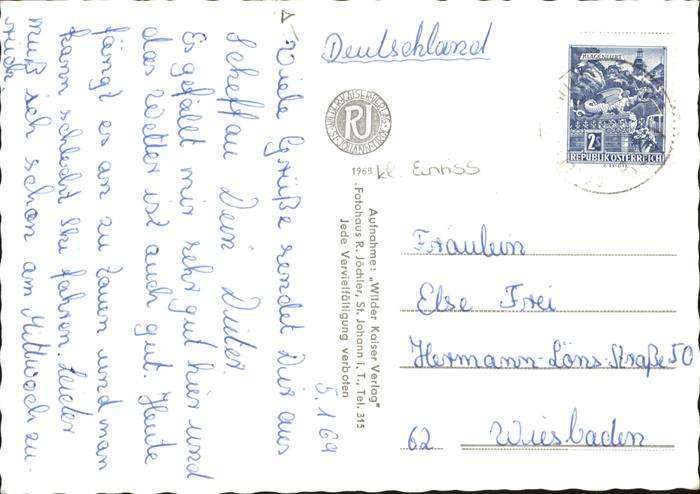 Deutschland
KLAGENFURT
2S
REPUBLIK ÖSTERREICH
WILDERKAISERVERLAG
RJ
ST. JOHANN
1968
kl. Einriss
Aufnahme: „Wilder Kaiser Verlag"
Fotohaus R. Jöchler, St. Johann i. T., Tel. 315
Jede Vervielfältigung verboten
5.1.69
Viele Grüße sendet Dir aus
Scheffau Dein Dieter.
Es gefällt mir sehr gut hier und
das Wetter ist auch gut. Heute
fängt es an zu tauen und man
kann schlecht Ski fahren. Leider
muß ich schon am Mittwoch zu-
rück.
Fräulein
Else Frei
Hermann-Löns-Straße 50
62 Wiesbaden